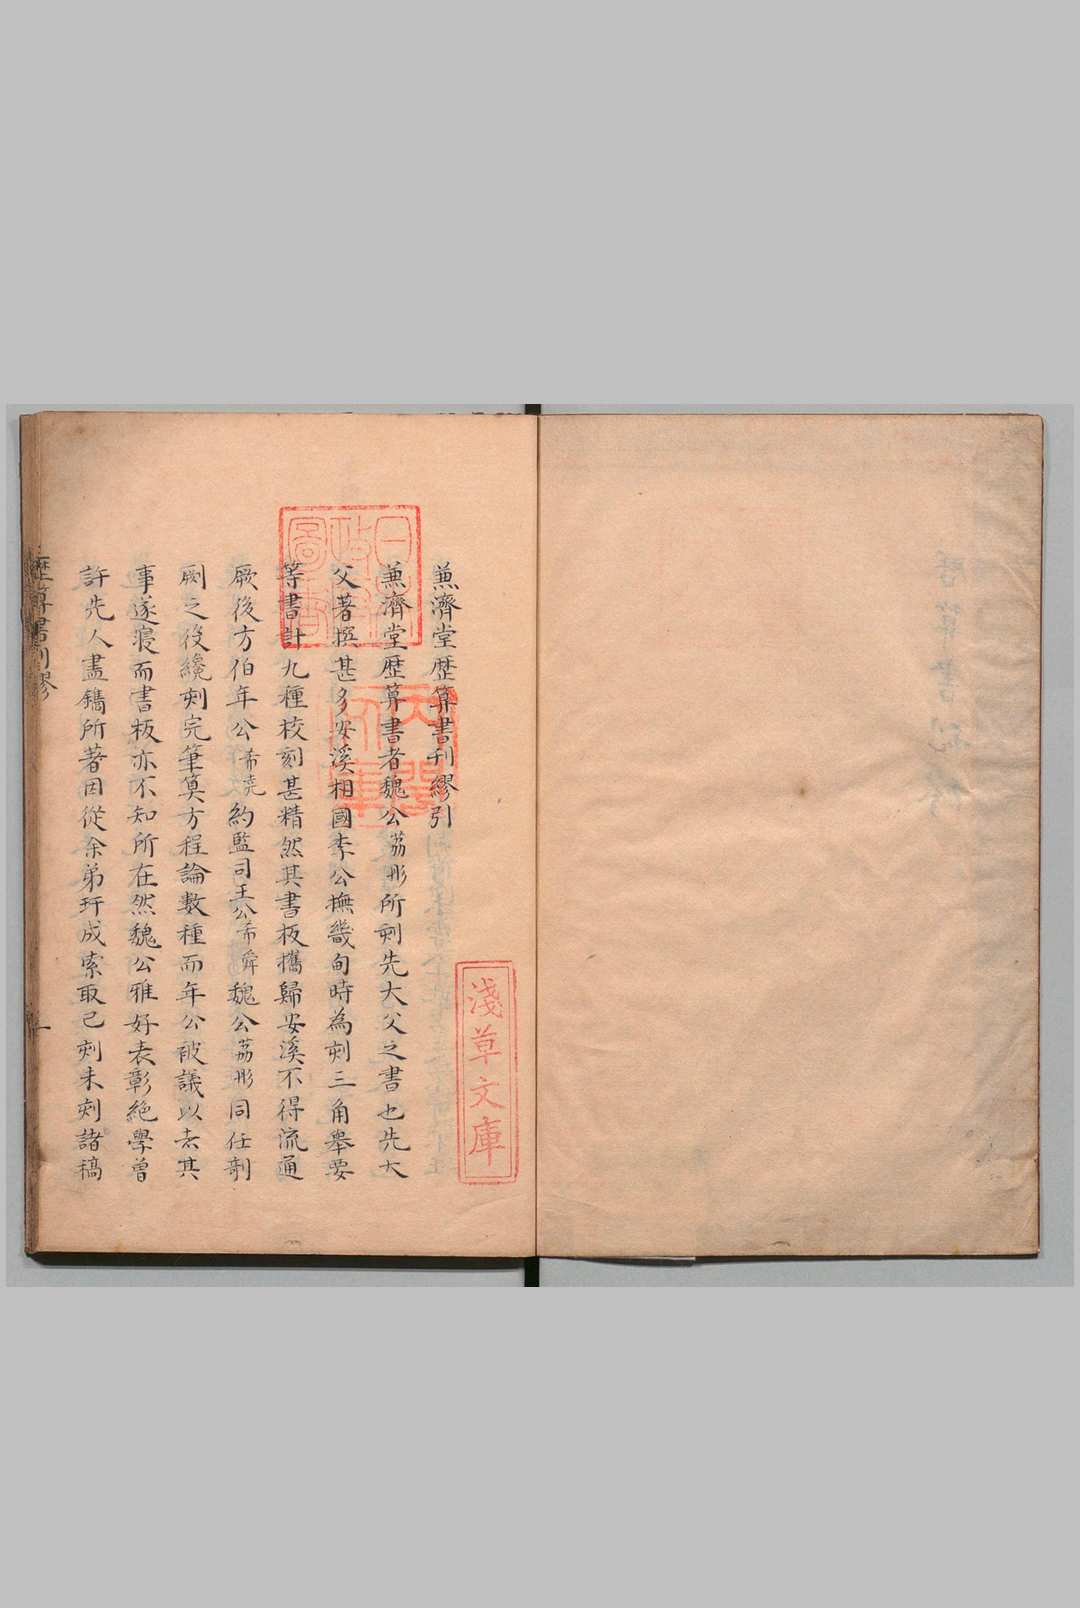 兼濟堂歴算書刊繆引
兼濟堂歴算書者魏公荔彤所刻先大父之書也先大
父著撰甚多安溪相國李公撫畿甸時為刻三角舉要
等書計九種校刻甚精然其書板攜歸安溪不得流通
厥後方伯年公希堯約監司王公希舜魏公荔彤同任剞
劂之役纔刻完筆算方程論數種而年公被議以去其
事遂寢而書板亦不知所在然魏公雅好表彰絶學曾
許先人盡鐫所著因從余弟玕成索取已刻未刻諸稿
歴算書刊繆
一
日本政府圖書
内閣文庫
淺草文庫